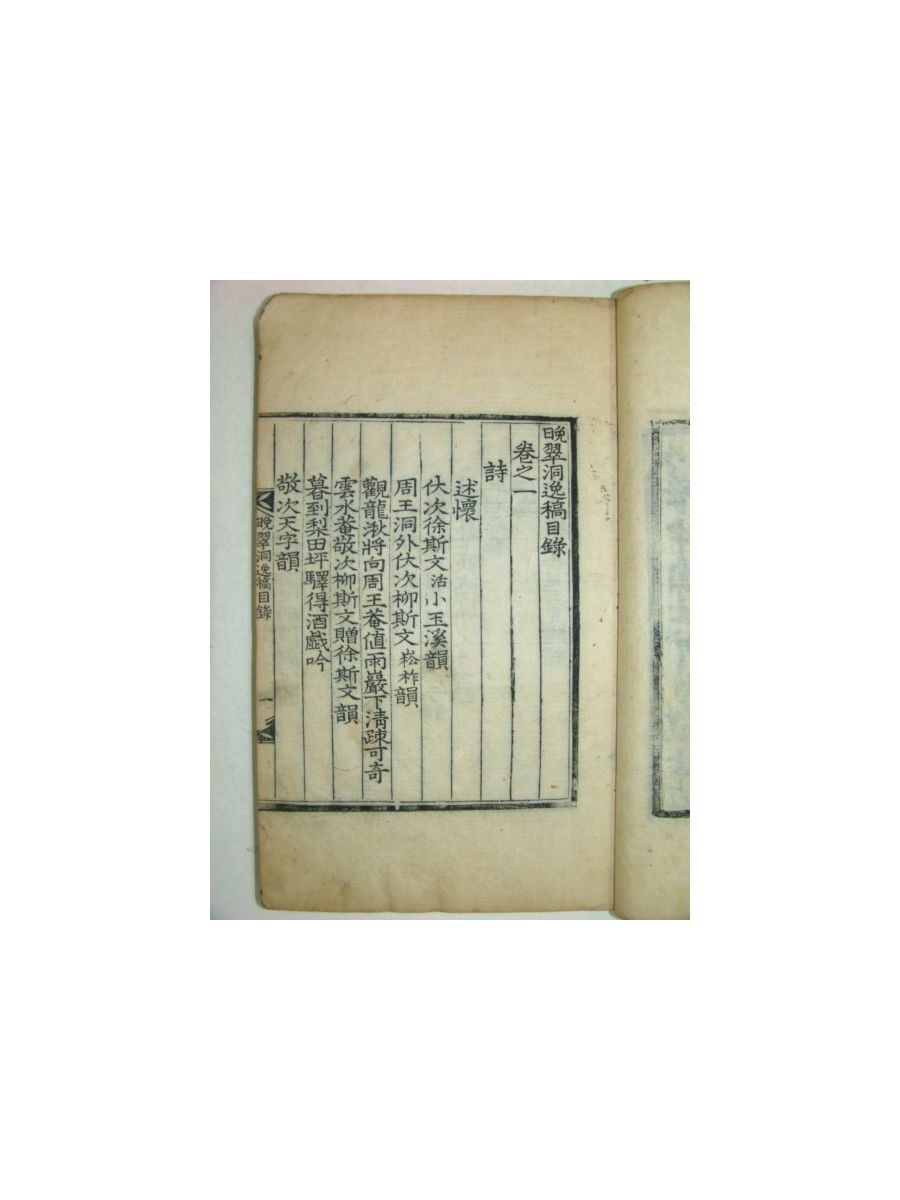 晚翠洞逸稿目錄
卷之一
詩
述懷
伏次徐斯文活小玉溪韻
周王洞外伏次柳斯文崧祚韻
觀龍湫將向周王菴值雨巖下清疎可奇
雲水菴敬次柳斯文贈徐斯文韻
暮到梨田坪驛得酒戱吟
敬次天字韻
晚翠洞逸稿目錄 一